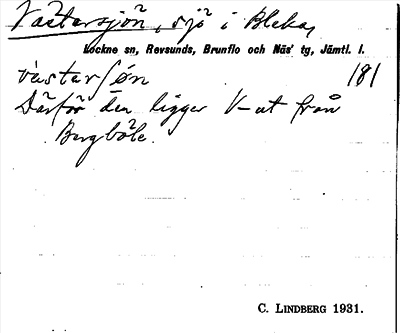 Västersjön, sjö i Bleka,
Lockne sn, Revsunds, Brunflo och Näs' tg, Jämtl. l.
västersjøn 181
Därför den ligger V-ut från
Bergböle.
C. LINDBERG 1931.